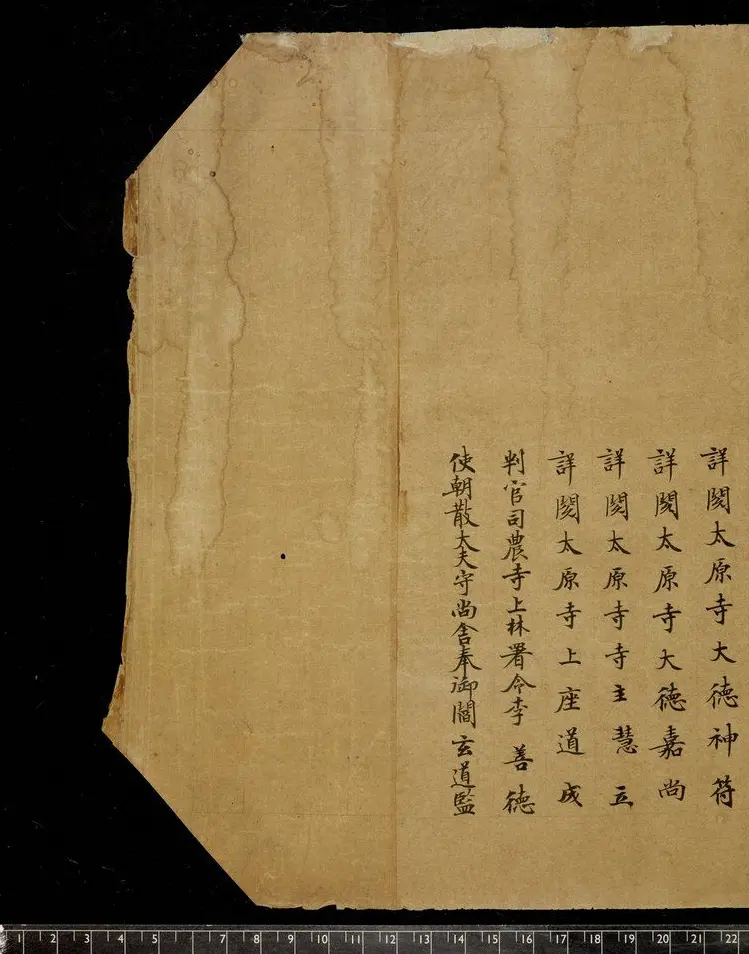 詳閱太原寺大德神苻
詳閱太原寺大德嘉尚
詳閱太原寺寺主慧立
詳閱太原寺上座道成
判官司農寺上林署令李善德
使朝散大夫守尚舍奉御閻玄道監
1 2 3 4 5 6 7 8 9 10 11 12 13 14 15 16 17 18 19 20 21 22